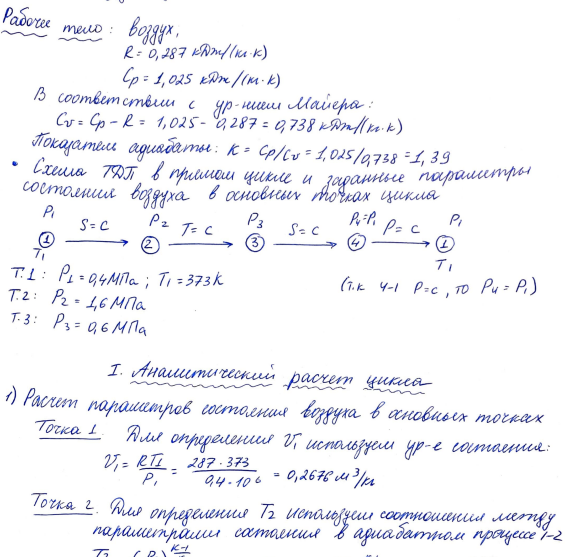 Рабочее тело: воздух,
R = 0,287 кДж/(кг·К)
Cp = 1,025 кДж/(кг·К)
В соответствии с ур-нием Майера:
Cv = Cp - R = 1,025 - 0,287 = 0,738 кДж/(кг·К)
Показатель адиабаты: K = Cp/Cv = 1,025/0,738 = 1,39
• Схема ТДП в прямом цикле и заданные параметры
состояния воздуха в основных точках цикла
P1 S=C P2 T=C P3 S=C P4=P1 P=C P1
1 → 2 → 3 → 4 → 1
T1 T1
Т.1: P1 = 0,4 МПа ; T1 = 373К (т.к 4-1 P=c, то P4 = P1)
Т.2: P2 = 1,6 МПа
Т.3: P3 = 0,6 МПа
I. Аналитический расчет цикла
1) Расчет параметров состояния воздуха в основных точках
Точка 1. Для определения V1 используем ур-е состояния:
V1 = RT1/P1 = 287·373/0,4·10⁶ = 0,2676 м³/кг
Точка 2. Для определения T2 используем соотношения между
параметрами состояния в адиабатном процессе 1-2